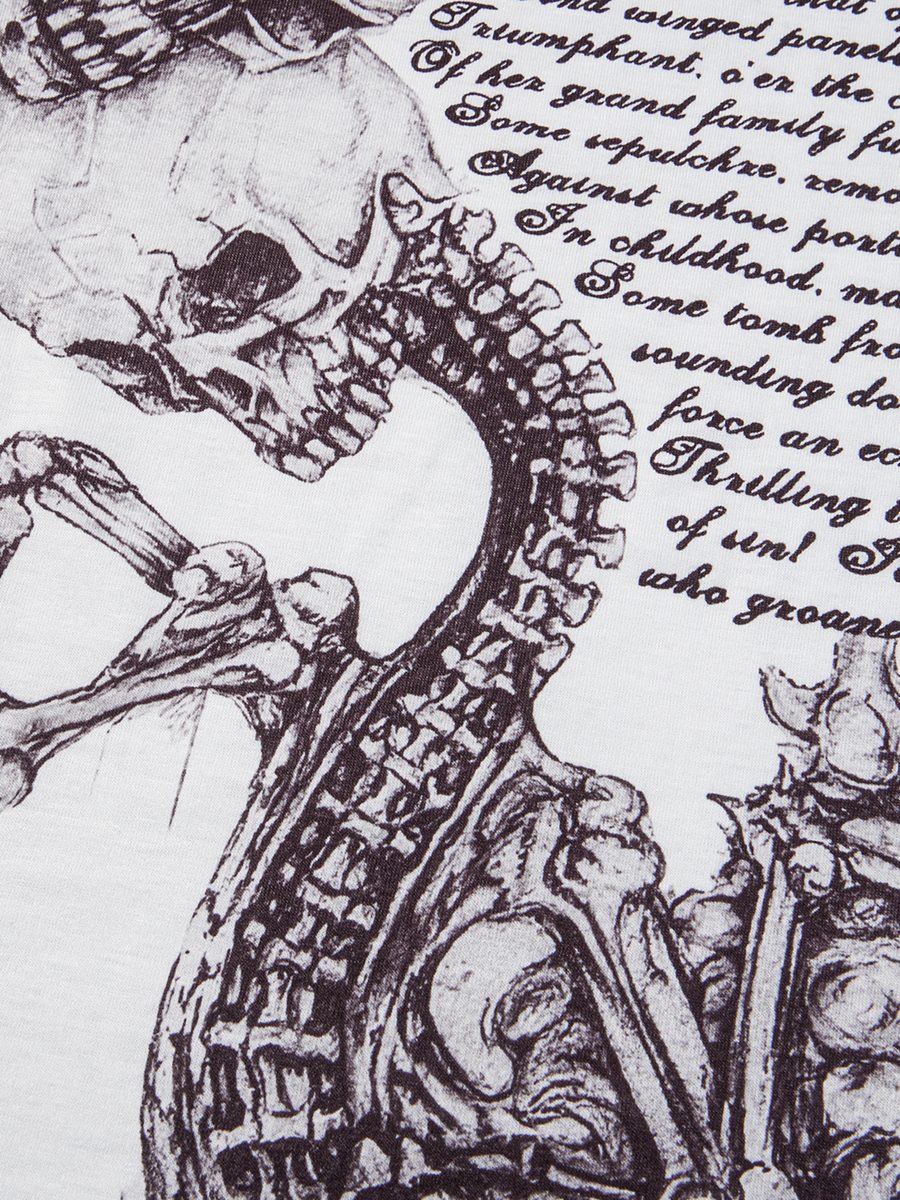 and winged panels
Triumphant, o'er the
Of her grand family
Some sepulchre, remo
Against whose porta
In childhood, ma
Some tomb fro
sounding do
force an ec
Thrilling t
of sin! I
who groane